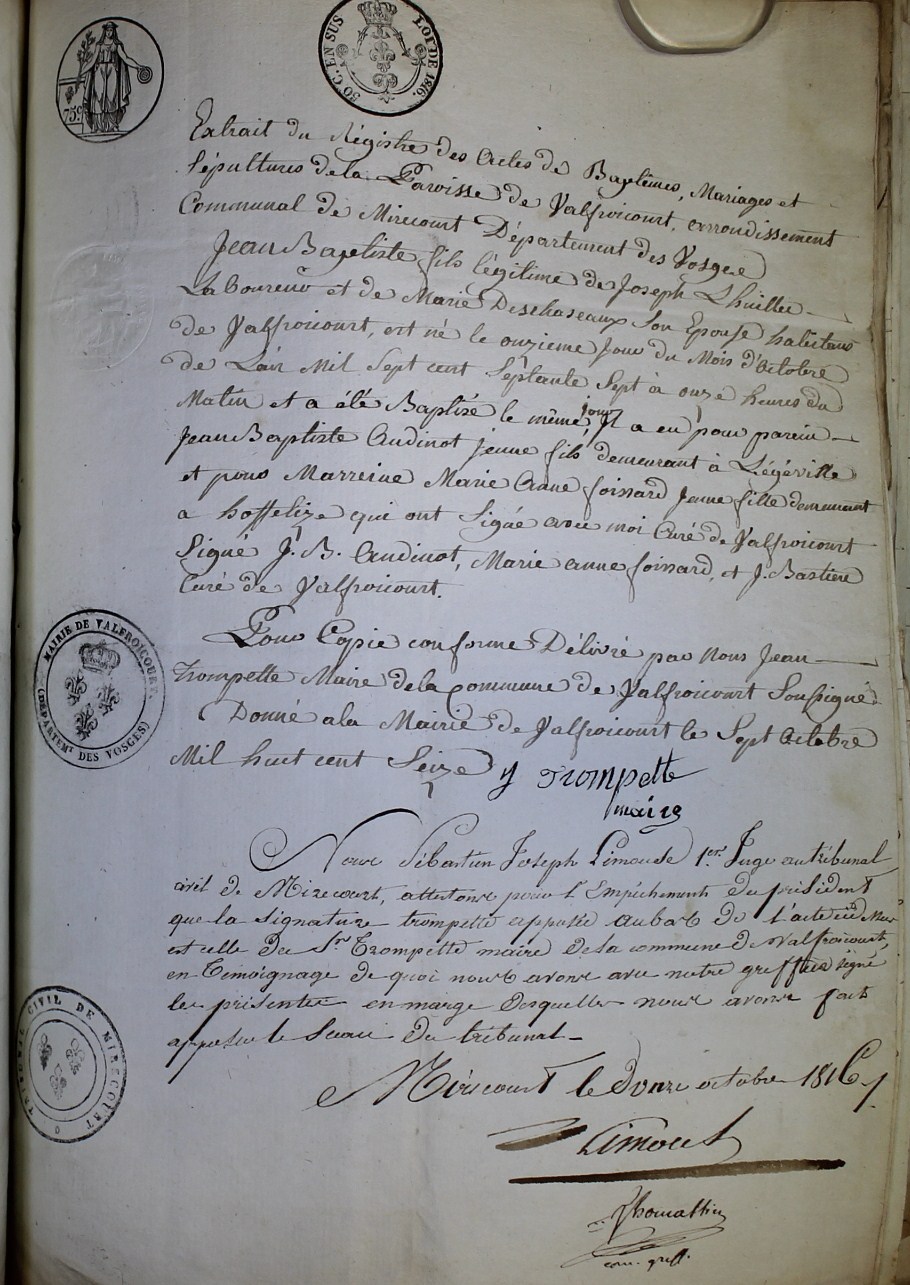 75c
50 C. EN SUS
LOI DE 1816.
Extrait du Régistre des Actes de Baptêmes, Mariages et
Sépultures de la Paroisse de Valfroicourt, arrondissement
Communal de Mirecourt Département des Vosges
Jean Baptiste fils légitime de Joseph Lhuillier
Laboureur et de Marie Deschaseaux Son Epouse habitans
de Valfroicourt, est né le onzieme Jour du Mois d'Octobre
de L'an Mil Sept cent Septante Sept à onze heures du
Matin et a été Baptizé le même jour Il a eu pour parein
Jean Baptiste Audinot jeune fils demeurant à Légéville
et pour Marreine Marie Anne foissard Jeune fille demeurant
a hoffelize qui ont Signé avec moi Curé de Valfroicourt
Signé J. B. Audinot, Marie anne foissard, et J. Bastiere
Curé de Valfroicourt.
MAIRIE DE VALFROICOURT.
(DÉPARTEMt. DES VOSGES)
Pour Copie conforme Délivré par Nous Jean
Trompette Maire de la commune de Valfroicourt Soussigné
Donné a la Mairie de Valfroicourt le Sept Octobre
Mil huit cent Seize
J Trompette
maire
Nous Sébastien Joseph Limouse 1er. Juge au tribunal
civil de Mirecourt, attestons pour l'Empêchement du président
que la signature trompette apposée au bas de l'acte
est celle du Sr. Trompette maire de la commune de Valfroicourt,
en Témoignage de quoi nous avons avec notre greffier signé
les présentes en marge desquelles nous avons fait
apposer le Sceau du tribunal.
TRIBUNAL CIVIL DE MIRECOURT
Mirecourt le Douze octobre 1816
Limous
Thomassin
com. greff.